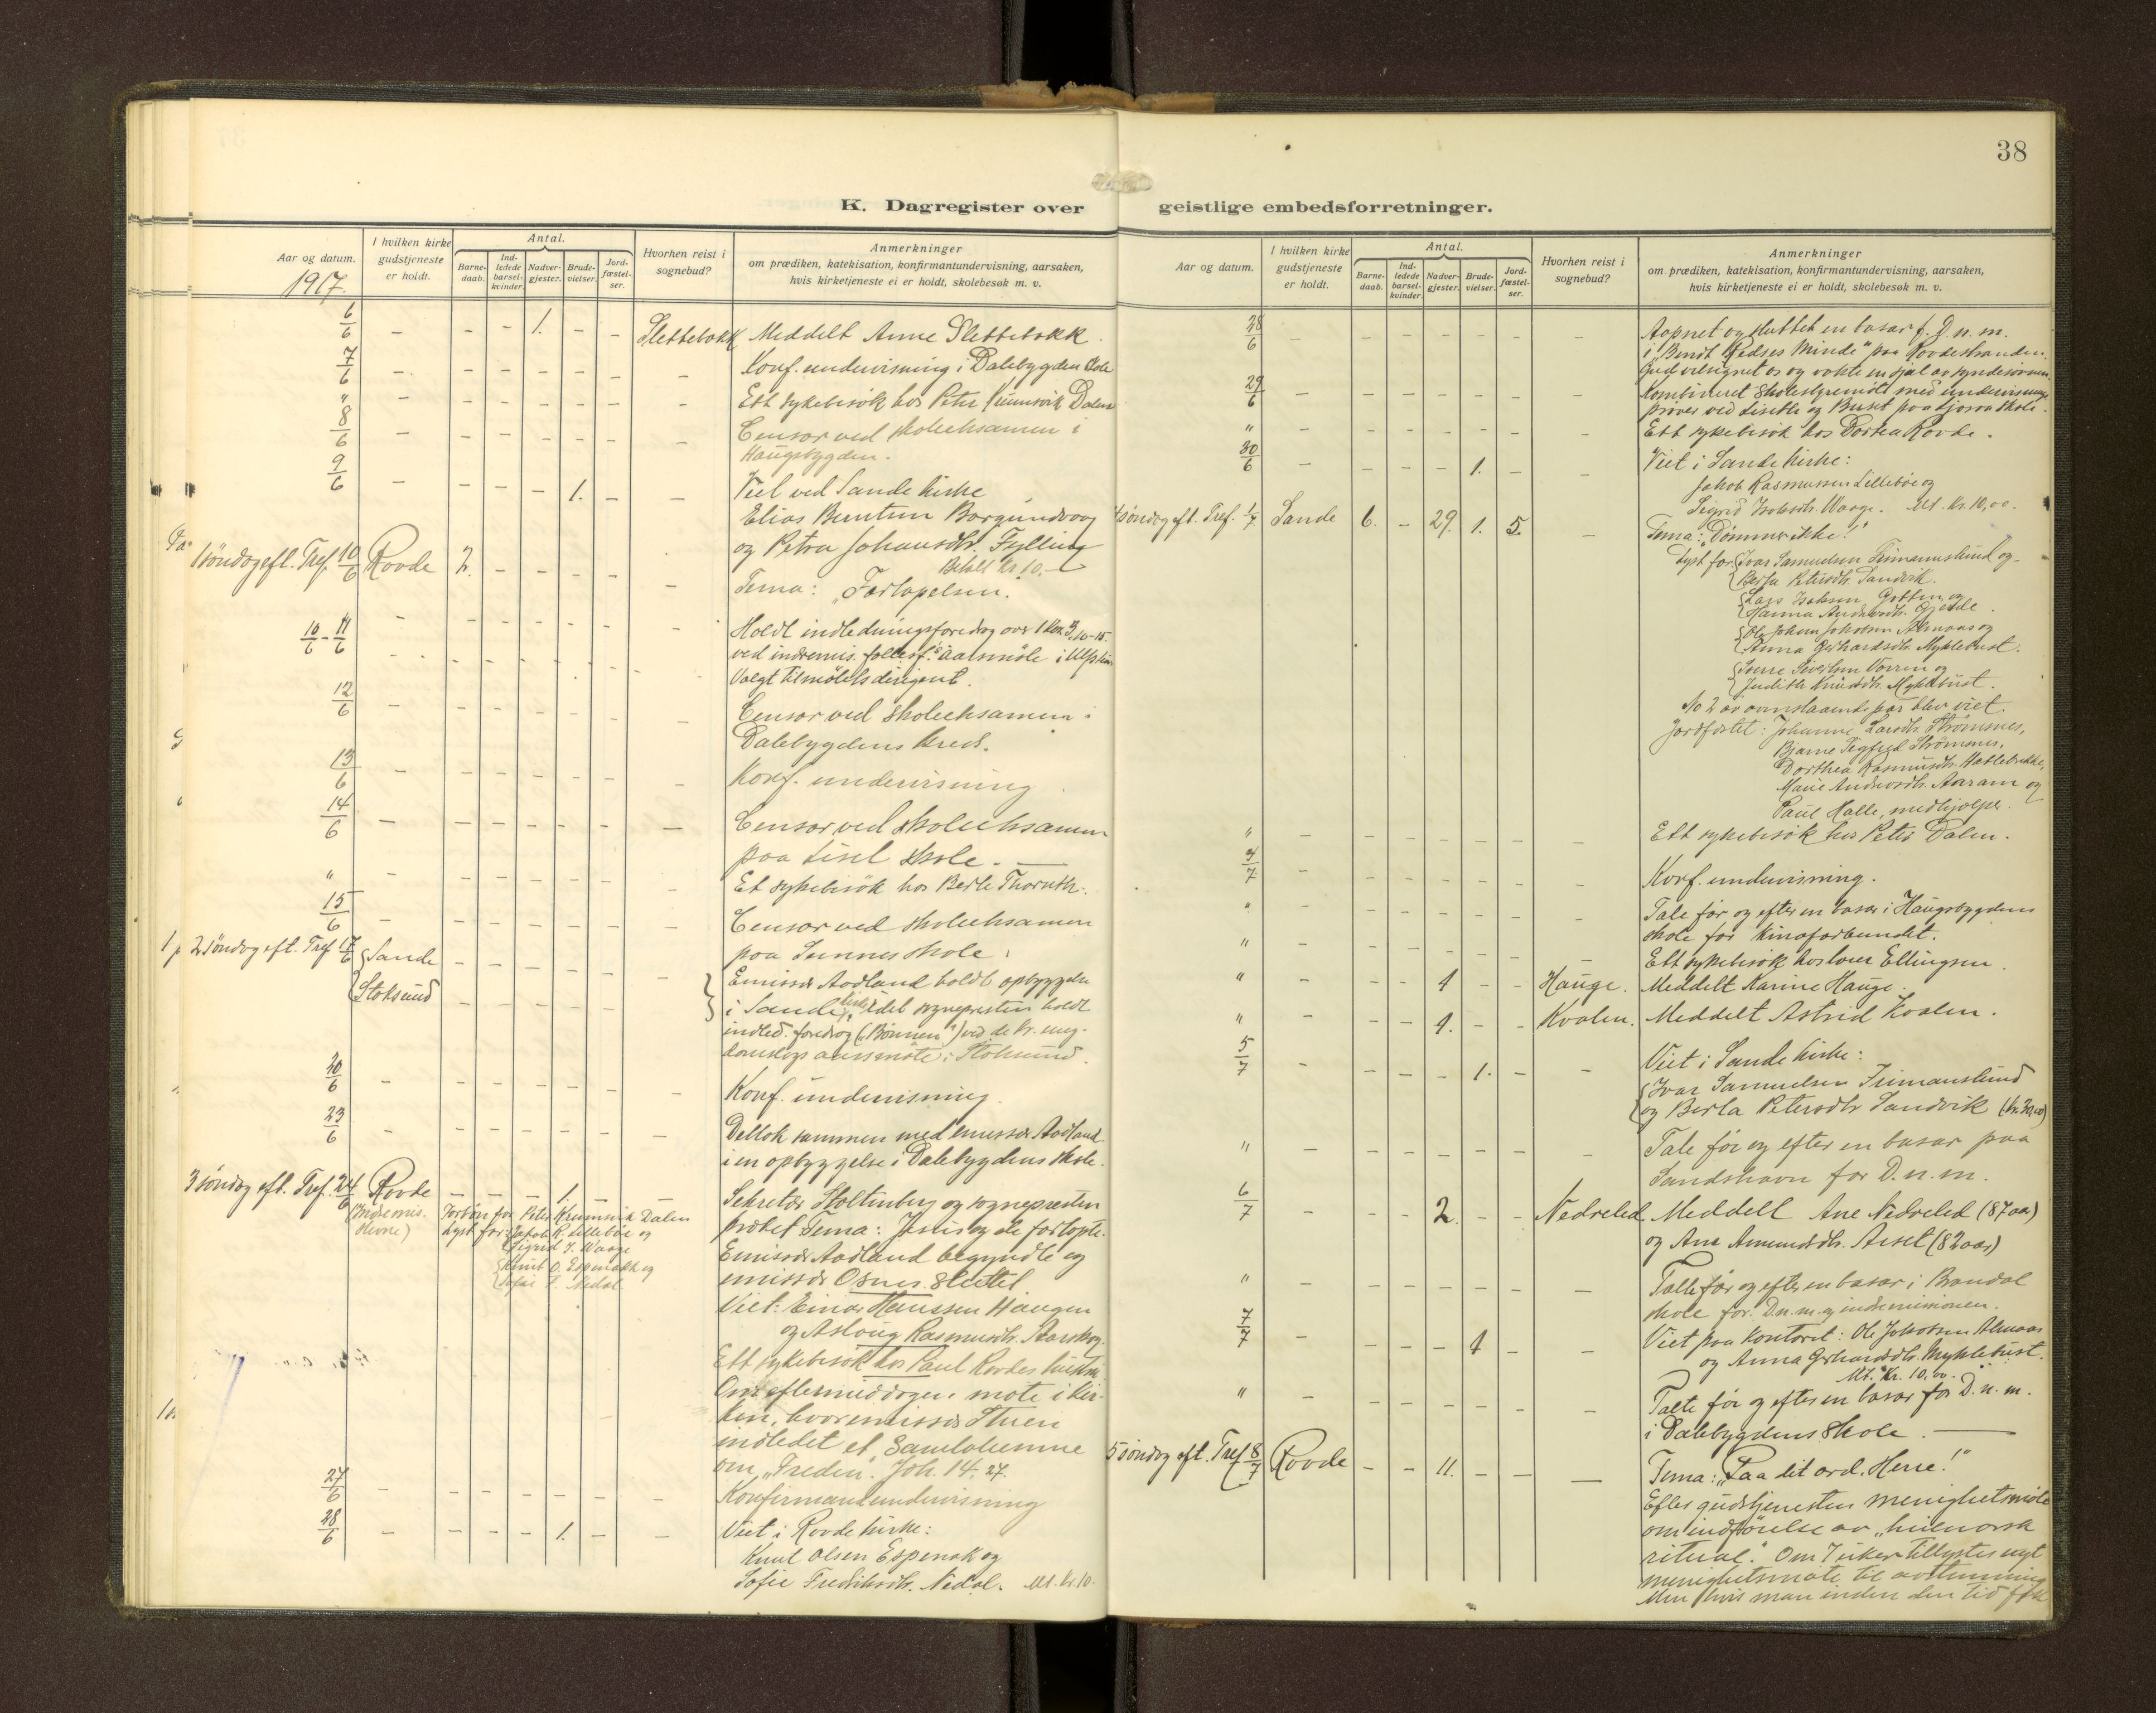 38
K. Dagregister over geistlige embedsforretninger.
Aar og datum.
1917.
I hvilken kirke gudstjeneste er holdt.
Antal.
Barne-daab.
Ind-ledede barsel-kvinder.
Nadver-gjester.
Brude-vielser.
Jord-fæstel-ser.
Hvorhen reist i sognebud?
Anmerkninger
om prædiken, katekisation, konfirmantundervisning, aarsaken,
hvis kirketjeneste ei er holdt, skolebesøk m. v.
6/6 – – – 1. – – Slettebakk Meddelt Anne Slettebakk.
7/6 – – – – – – – Konf. undervisning i Dalebygden skole
" – – – – – – – Ett sykebesök hos Peter Krumsvik Dalen
8/6 – – – – – – – Censor ved skoleeksamen i
Haugsbygden.
9/6 – – – – 1. – – Viet ved Sande kirke
Elias Berntsen Borgundvaag
og Petra Johansdtr. Fylling
Betalt kr. 10.–
1 söndag eft. Tref. 10/6 Rovde 2. – – – – – Tema: "Fortapelsen".
10/6 – 11/6 – – – – – – – Holdt indledningsforedrag over 1 Kor. 3, 10-15.
ved indremis. fellesf.'s aarsmöte i Ulstein
Valgt til mötets dirigent.
12/6 – – – – – – – Censor ved skoleeksamen i
Dalebygdens kreds.
13/6 – – – – – – – Konf. undervisning
14/6 – – – – – – – Censor ved skoleeksamen
paa Liset skole. –
" – – – – – – – Et sykebesök hos Berte
15/6 – – – – – – – Censor ved skoleeksamen
paa Sunnes skole.
2 söndag eft. Tref. 17/6 Sande – – – – – – Emissær Aadland holdt opbyggelse
Stoksund – – – – – i Sande kirke, idet sognepresten holdt
indled. foredrag ("Bönnen") ved de kr. ung-
domslags aarsmöte i Stoksund.
20/6 – – – – – – – Konf. undervisning.
23/6 – – – – – – – Deltok sammen med emissær Aadland
i en opbyggelse i Dalebygdens skole.
3 söndag eft. Tref. 24/6 Rovde – – – 1. – – Sekretær Stoltenberg og sognepresten
(Indremis. stevne) Forbön for Peter Krumsvik Dalen
Lyst for: Jakob R. Lilleböe og
Sigrid J. Waage
Knut O. Espenakk og
Sofie F. Nedal
præket Tema: Jesus og de fortapte.
Emissær Aadland begyndte og
emissær Osnes sluttet
Viet: Einar Hanssen Haugen
og Aslaug Rasmusdtr. Aarskog.
Ett sykebesök hos Paul Rovdes hustru.
Om eftermiddagen möte i kir-
ken, hvor emissær Stuen
indledet et samtaleemne
om "Freden". Joh. 14, 27.
27/6 – – – – – – – Konfirmantundervisning
28/6 – – – – 1. – – Viet i Rovde kirke:
Knut Olsen Espenak og
Sofie Fredriksdtr. Nedal. Mt. kr. 10.
Aar og datum.
I hvilken kirke gudstjeneste er holdt.
Antal.
Barne-daab.
Ind-ledede barsel-kvinder.
Nadver-gjester.
Brude-vielser.
Jord-fæstel-ser.
Hvorhen reist i sognebud?
Anmerkninger
om prædiken, katekisation, konfirmantundervisning, aarsaken,
hvis kirketjeneste ei er holdt, skolebesøk m. v.
28/6 – – – – – – – Aapnet og sluttet en basar f. D. n. m.
i "Bendt Rødses Minde" paa Rovdestranden.
Gud velsignet os og vakte en sjæl av syndesövnen.
29/6 – – – – – – – Kombineret skolestyremöte med undervisnings-
pröver ved Lisethe og Buset paa skole.
" – – – – – – – Ett sykebesök hos Dortea Rovde.
30/6 – – – – 1. – – Viet i Sande kirke:
Jakob Rasmussen Lilleböe og
Sigrid Jakobsdtr. Waage. Mt. kr. 10,00.
4 söndag eft. Tref. 1/7 Sande 6. – 29. 1. 5. – Tema: "Dömmer ikke!"
Lyst for: Ivar Samuelsen Furmanslund og
Berta Petersdtr. Sandvik.
Lars Gotten og
Hanna Gjerde.
Ole Johan Jakobsen Almaas og
Anna Gerhardsdtr. Myklebust.
Sivertsen Vorren og
Judith Knudsdtr. Myklebust.
No 2 av ovenstaaende par blev viet.
Jordfæstet: Johanne Larsdtr. Strömsnes,
Bjarne Sigfred Strömsnes,
Dorthea Rasmusdtr. Hatlebrekke,
Marie Andreasdtr. Aaram og
Paul Halle, medhjelper.
" – – – – – – – Ett sykebesök hos Peter Dalen.
4/7 – – – – – – – Konf. undervisning.
" – – – – – – – Tale för og efter en basar i Haugsbygdens
skole for kinaforbundet.
" – – – – – – – Ett sykebesök hos lærer Ellingsen.
" – – – 1 – – Hauge. Meddelt Karine Hauge.
" – – – 1. – – Kvalen. Meddelt Astrid Kvalen.
5/7 – – – – 1. – – Viet i Sande kirke:
Ivar Samuelsen Furmanslund
og Berta Petersdtr. Sandvik (kr. 20,00)
" – – – – – – – Tale för og efter en basar paa
Sandshavn for D. n. m.
6/7 – – – 2. – – Nedreled. Meddelt Ane Nedreled (87 aar)
og Ane Amundsdtr. Aarset (82 aar)
" – – – – – – – Talte för og efter en basar i Brandal
skole for D. n. m. og indremisionen.
7/7 – – – – 1 – – Viet paa kontoret: Ole Jakobsen Almaas
og Anna Gerhardsdtr. Myklebust.
Mt. kr. 10,00.
" – – – – – – – Talte för og efter en basar for D. n. m.
i Dalebygdens skole. –
5 söndag eft. Tref. 8/7 Rovde – – 11. – – – Tema: "Paa dit ord, Herre!"
Efter gudstjenesten menighetsmöte
om indförelse av "hüenorsk
ritual." Om 7 uker tillystes nyt
menighetsmöte til avstemning
Men hvis man inden den tid fik